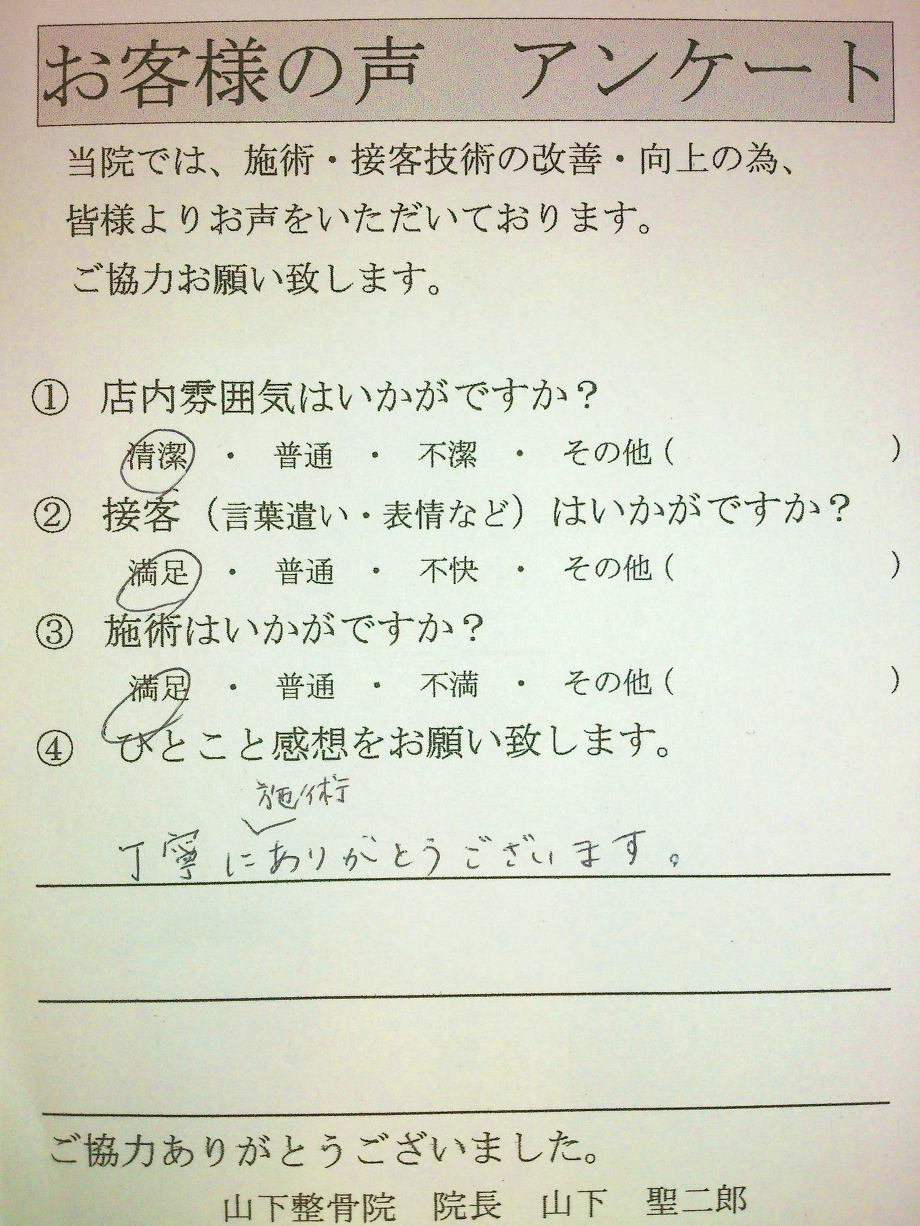 お客様の声　アンケート
当院では、施術・接客技術の改善・向上の為、
皆様よりお声をいただいております。
ご協力お願い致します。
① 店内雰囲気はいかがですか？
清潔 ・ 普通 ・ 不潔 ・ その他（　　　　　）
② 接客（言葉遣い・表情など）はいかがですか？
満足 ・ 普通 ・ 不快 ・ その他（　　　　　）
③ 施術はいかがですか？
満足 ・ 普通 ・ 不満 ・ その他（　　　　　）
④ ひとこと感想をお願い致します。
施術
丁寧にありがとうございます。
ご協力ありがとうございました。
山下整骨院　院長　山下　聖二郎